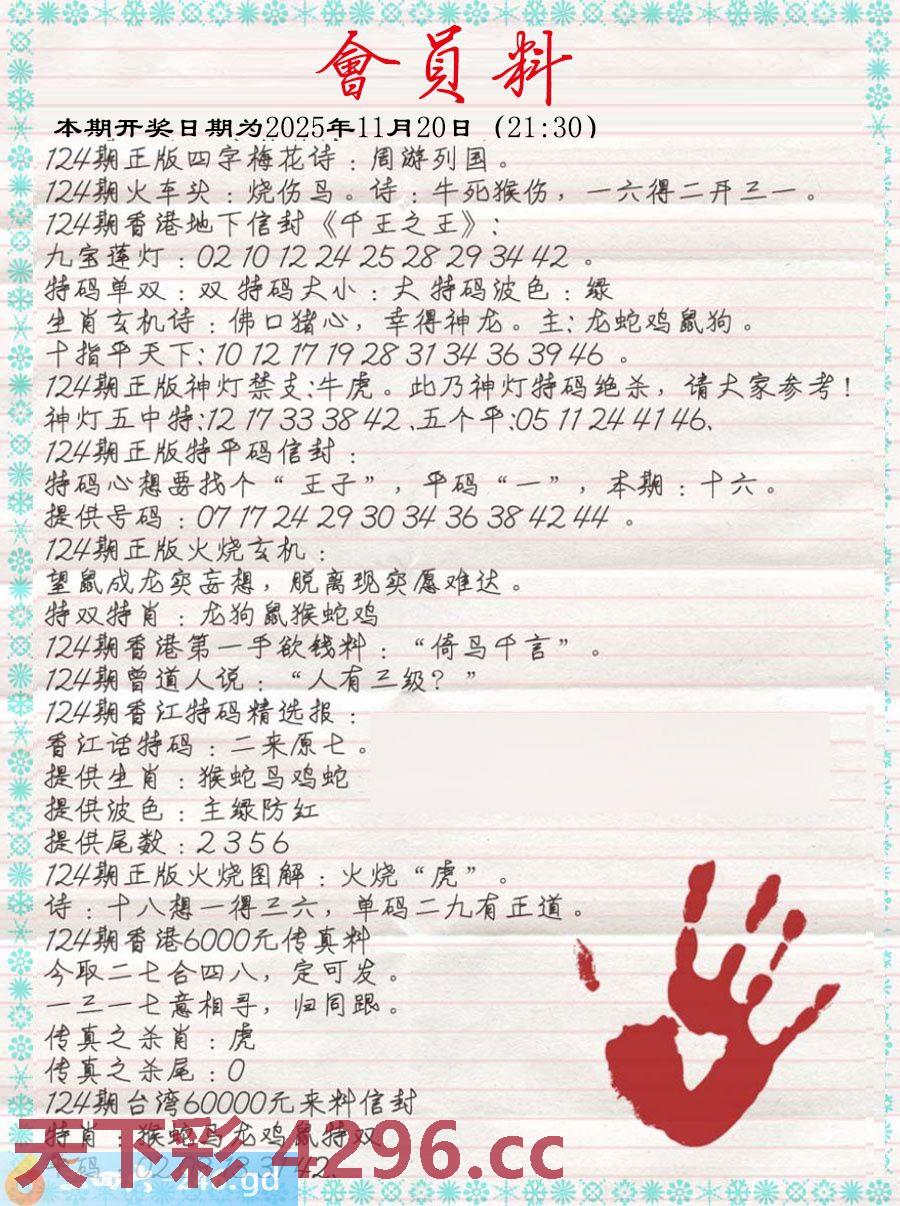 會員料
本期开奖日期为2025年11月20日（21:30）
124期正版四字梅花诗：周游列国。
124期火车头：烧伤鸟。诗：牛死猴伤，一六得二开三一。
124期香港地下信封《千王之王》：
九宝莲灯：02 10 12 24 25 28 29 34 42 。
特码单双：双 特码大小：大 特码波色：绿
生肖玄机诗：佛口猪心，幸得神龙。主：龙蛇鸡鼠狗。
十指平天下：10 12 17 19 28 31 34 36 39 46 。
124期正版神灯禁支：牛虎。此乃神灯特码绝杀，请大家参考！
神灯五中特：12 17 33 38 42 、五个平：05 11 24 41 46、
124期正版特平码信封：
特码心想要找个“ 王子”，平码“一”，本期：十六。
提供号码：07 17 24 29 30 34 36 38 42 44 。
124期正版火烧玄机：
望鼠成龙实妄想，脱离现实愿难达。
特双特肖：龙狗鼠猴蛇鸡
124期香港第一手欲钱料：“倚马千言”。
124期曾道人说：“人有三级？”
124期香江特码精选报：
香江话特码：二来原七。
提供生肖：猴蛇马鸡蛇
提供波色：主绿防红
提供尾数：2 3 5 6
124期正版火烧图解：火烧“虎”。
诗：十八想一得三六，单码二九有正道。
124期香港6000元传真料
今取二七合四八，定可发。
一三一七意相寻，归同跟。
传真之杀肖：虎
传真之杀尾：0
124期台湾60000元来料信封
特肖：猴蛇马龙鸡鼠特双
天下彩 4296.cc